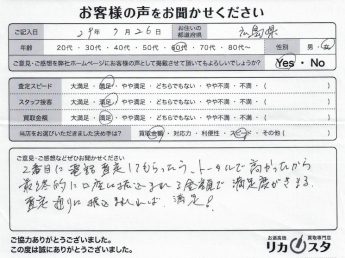 お客様の声をお聞かせください
ご記入日 29年9月26日 お住いの都道府県 広島県
年齢 20代・30代・40代・50代・60代・70代・80代〜 性別 男・女
ご意見・ご感想を弊社ホームページにお客様の声として掲載させて頂いてもよろしいでしょうか? Yes・No
査定スピード 大満足・満足・やや満足・どちらでもない・やや不満・不満・( )
スタッフ接客 大満足・満足・やや満足・どちらでもない・やや不満・不満・( )
買取金額 大満足・満足・やや満足・どちらでもない・やや不満・不満・( )
当店をお選びいただきました決め手は? 買取金額・対応力・利便性・スピード・その他( )
ご意見・ご感想などぜひお聞かせください
2番目に電話査定してもらったら、トータルで高かったから
最終的に口座に振込まれる金額で満足度がきまる。
査定通りに振込まれれば、満足!
ご協力ありがとうございました。
この度は誠にありがとうございました。
お酒高価買取専門店
リカスタ